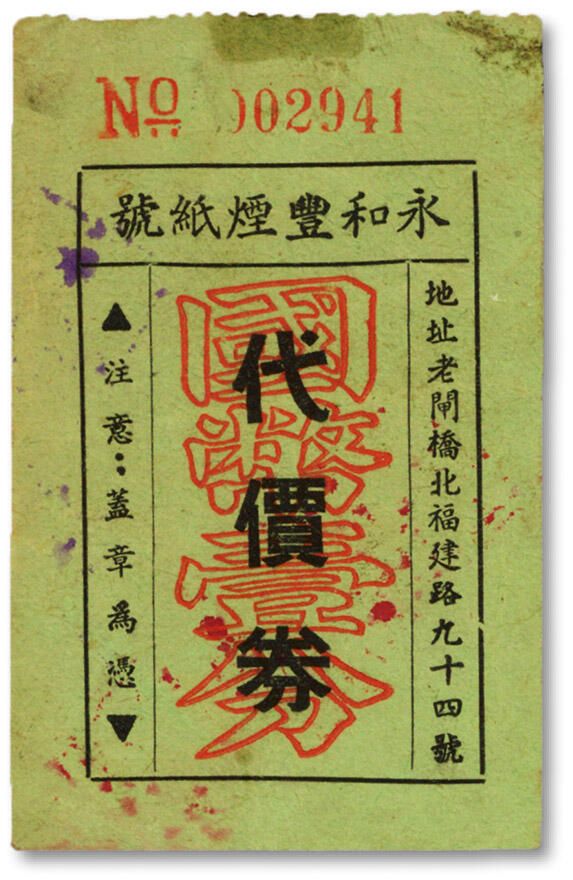 No 002941
永和豐煙紙號
地址老閘橋北福建路九十四號
國幣壹分
代價券
▲注意：蓋章為憑▼